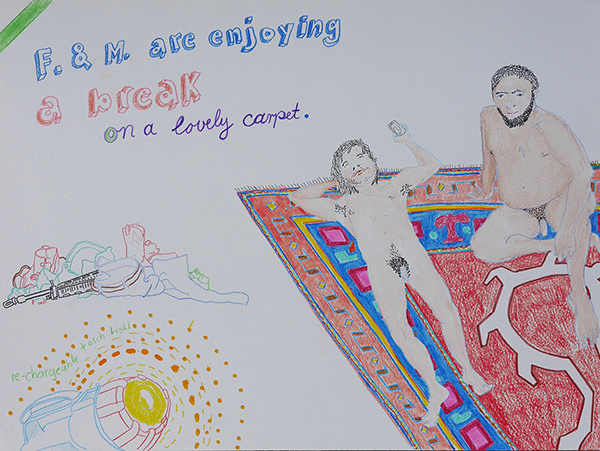 F. & M. are enjoying
a break
on a lovely carpet.
re-chargeable torch light